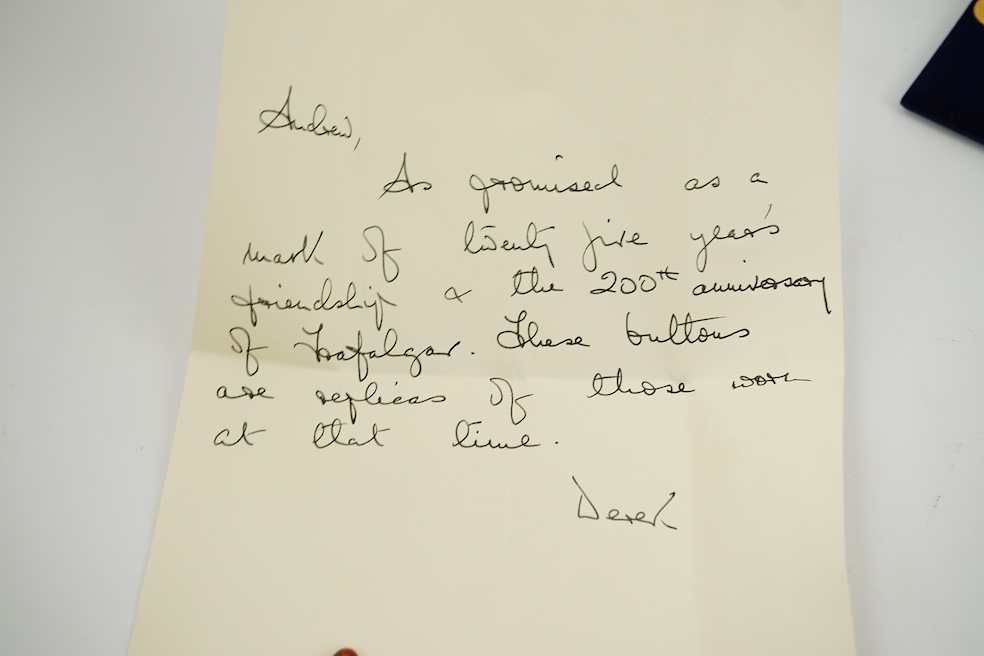 Andrew,
As promised as a
mark of twenty five year's
friendship & the 200th anniversary
of Trafalgar. These buttons
are replicas of those worn
at that time.
Derek